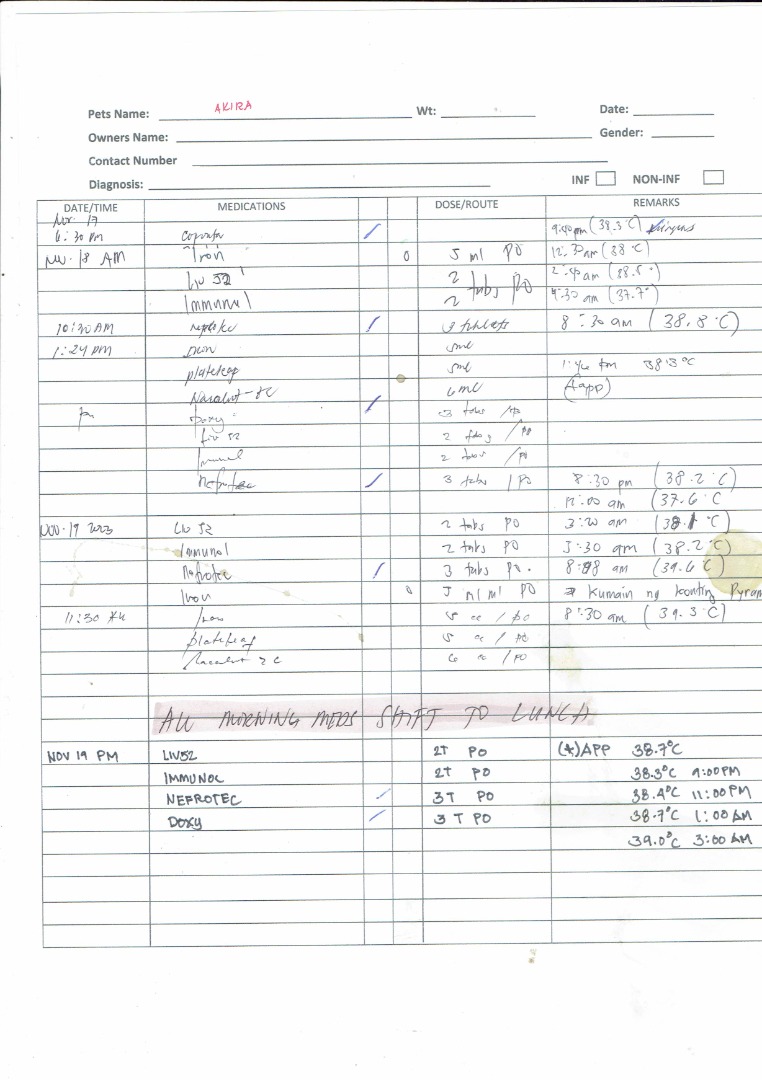 AKIRA
Pets Name: Wt: Date:
Owners Name: Gender:
Contact Number
Diagnosis: INF NON-INF
DATE/TIME MEDICATIONS DOSE/ROUTE REMARKS
Nov. 17
6:30 pm 9:40pm (38.3°C)
Nov. 18 AM Iron 0 5 ml PO 12:30am (38°C)
Liv 52 2 tabs PO
Immunol 2 4:30 am (37.7°)
10:30 AM 3 8:30 am (38.8°C)
1:24 pm 5ml
plateleap 5ml 38.3°C
Nacalvit - 6ml (+app)
Doxy 3 tabs / po
Liv 52 2 / po
2 tabs / po
Nefrotec 3 tabs / PO 8:30 pm (38.2°C)
12:00 am (37.6°C
NOV. 19 2023 Liv 52 2 tabs PO 3:20 am (38.1°C)
Immunol 2 tabs PO 5:30 am (38.2°C)
Nefrotec 3 tabs PO. am (39.6°C)
Iron 0 5 ml ml PO Kumain ng konting
11:30 AM Iron 5 cc / po 8:30 am (39.3°C)
plateleap 5 cc / po
6 cc / po
ALL MORNING MEDS SHIFT TO LUNCH
NOV 19 PM LIV52 2T PO (+)APP 38.7°C
IMMUNOL 2T PO 38.3°C 9:00PM
NEFROTEC 3T PO 38.4°C 11:00PM
DOXY 3 T PO 38.7°C 1:00 AM
39.0°C 3:00 AM